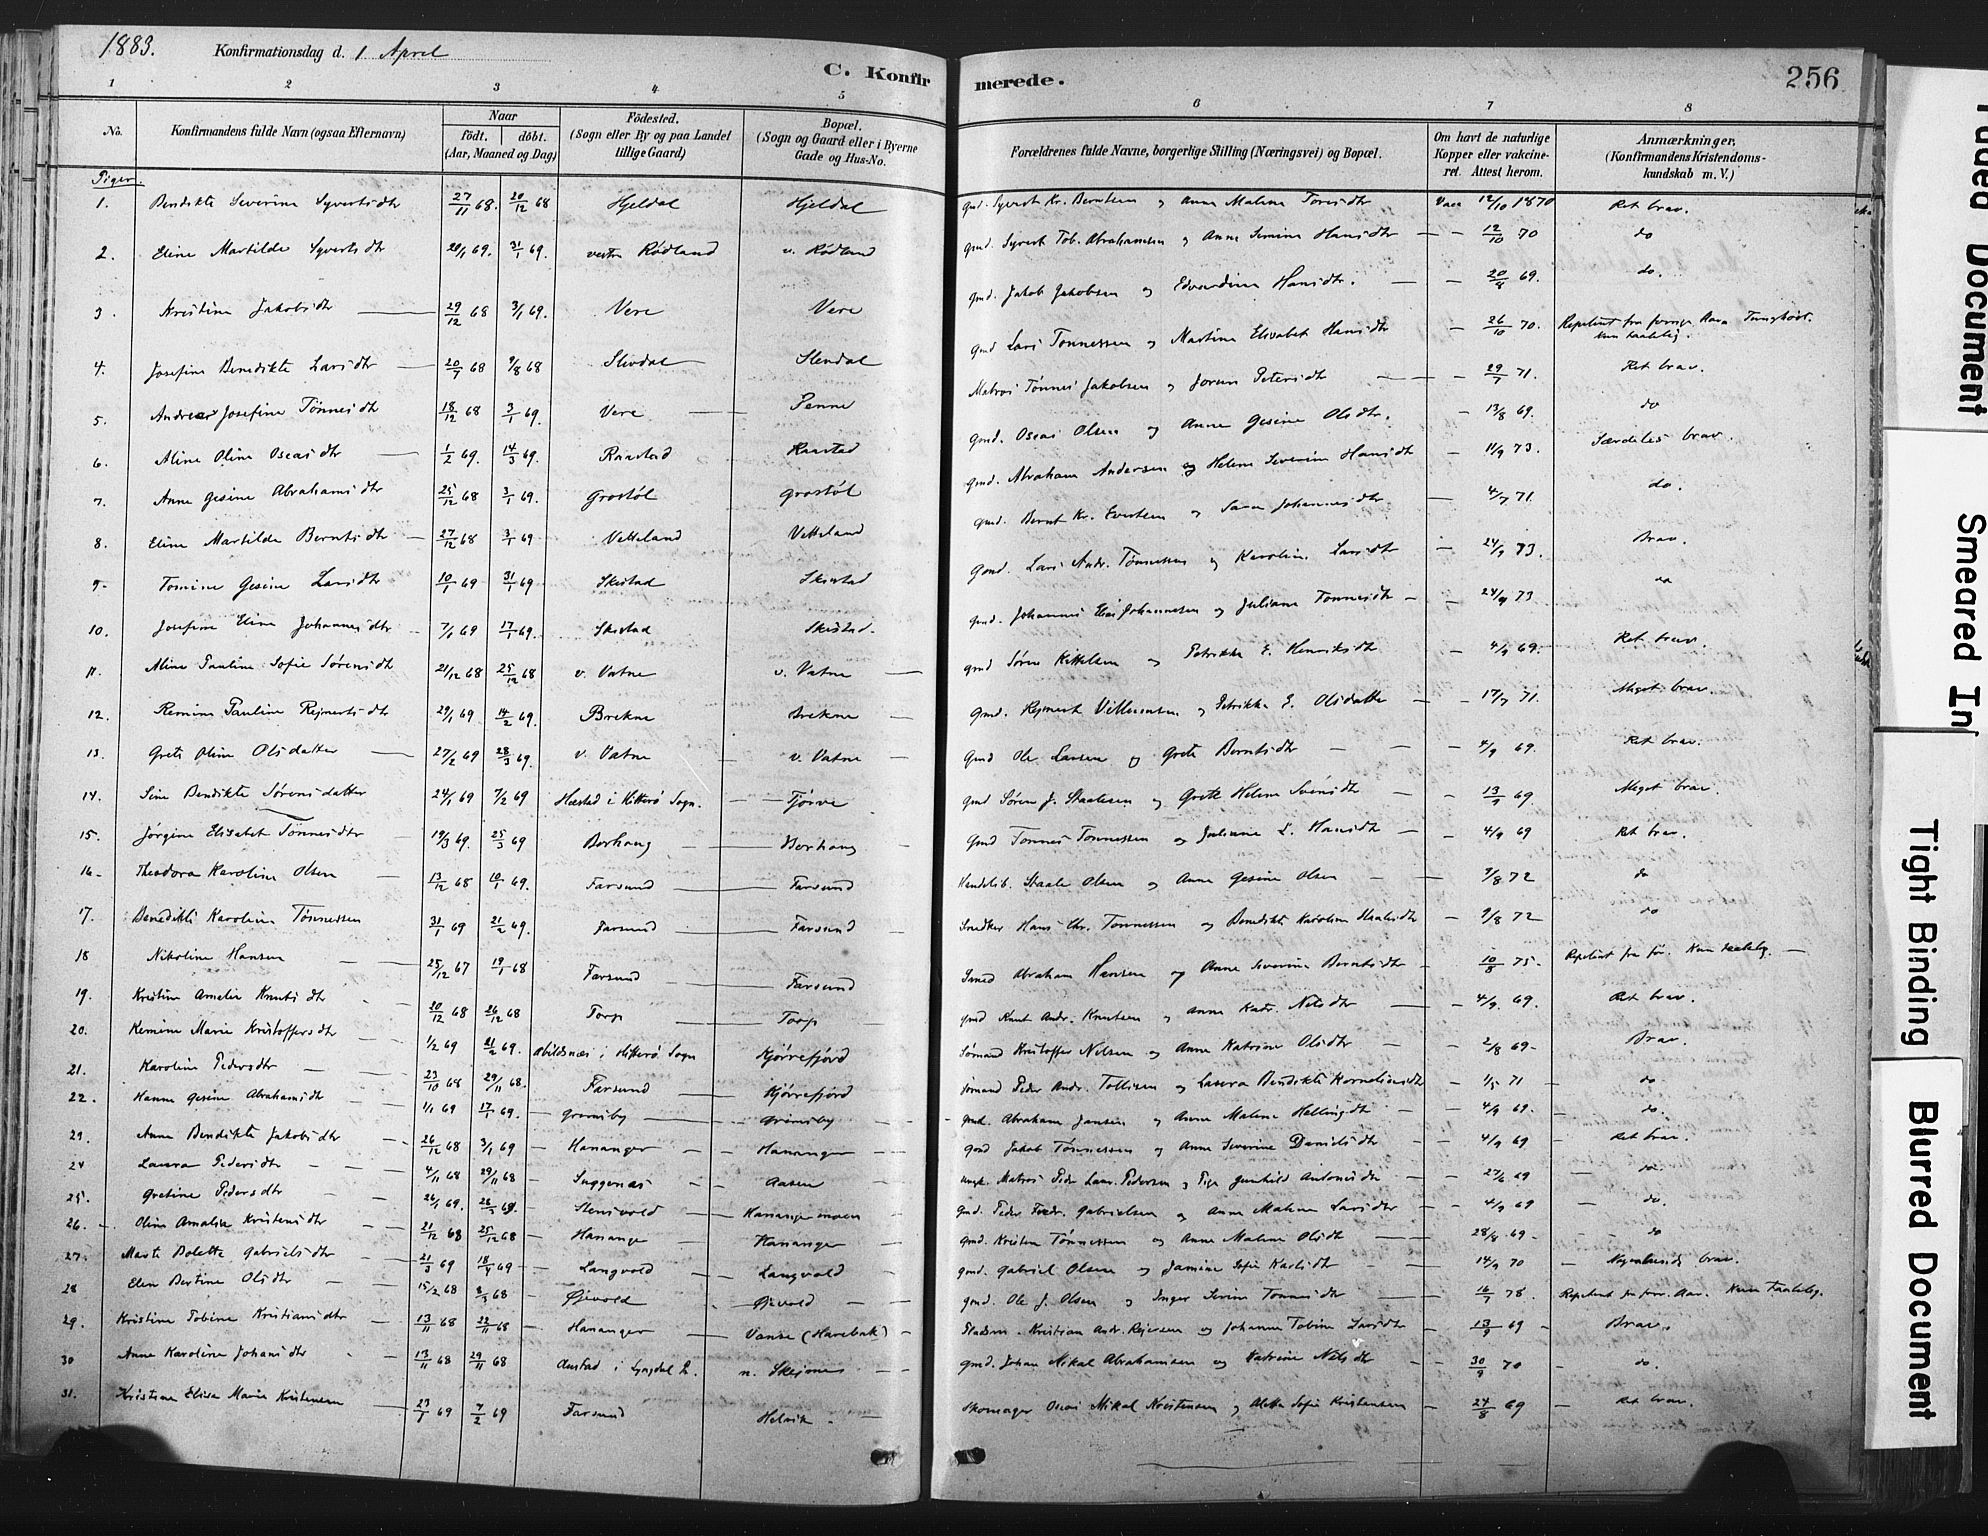 1883. Konfirmationsdag d. 1 April
C. Konfirmerede.
256
1 2 3 4 5 6 7 8
No. Konfirmandens fulde Navn (ogsaa Efternavn) Naar født. døbt. (Aar, Maaned og Dag) Fødested. (Sogn eller By og paa Landet tillige Gaard) Bopæl. (Sogn og Gaard eller i Byerne Gade og Hus-No. Forældrenes fulde Navne, borgerlige Stilling (Næringsvei) og Bopæl. Om havt de naturlige Kopper eller vakcineret. Attest herom. Anmærkninger. (Konfirmandens Kristendomskundskab m. V.)
Piger.
1. Bendikte Severine Syvertsdtr 27/11 68. 20/12 68 Hjeldal Hjeldal Gmd. Syvert Kr. Berntsen og Anne Malene Toresdtr Vacc 12/10 1870 Ret brav.
2. Eline Martilde Syvertsdtr 20/1 69. 31/1 69. vestre Rødland v. Rødland Gmd. Syvert Tob. Abrahamsen og Anne Semine Hansdtr — — 12/10 70 do
3. Kristine Jakobsdtr 29/12 68 3/1 69. Vere Vere Gmd. Jakob Jakobsen og Edvardine Hansdtr. — — 20/8 69. do.
4. Josefine Benedikte Larsdtr 20/7 68 9/8 68 Slevdal Slendal Gmd Lars Tønnessen og Martine Elisabet Hansdtr — 26/10 70. Repetent fra forrige Aar. Tunghørt. Kun taalelig.
5. Andrea Josefine Tønnesdtr 18/12 68 3/1 69. Vere Penne Matros Tønnes Jakobsen og Jorun Petersdtr — 29/7 71. Ret brav.
6. Aline Oline Oseasdtr 1/2 69. 14/3 69. Raastad Raastad Gmd. Oseas Olsen og Anne Gesine Olsdtr. — 13/8 69. do
7. Anne Gesine Abrahamsdtr 25/12 68 3/1 69. Grostøl Grostøl Gmd. Abraham Andersen og Helene Severine Hansdtr — 11/9 73. Særdeles brav.
8. Eline Martilde Berntsdtr 27/12 68 3/1 69 Vetteland Vetteland Gmd. Bernt Kr. Evertsen og Sara Johannesdtr — 4/7 71. do.
9. Tomine Gesine Larsdtr 10/1 69 31/1 69 Skistad Skistad Gmd. Lars Andr. Tønnessen og Karoline Larsdtr — 24/9 73. Brav.
10. Josefine Eline Johannesdtr 7/1 69 17/1 69. Skistad Skistad. Gmd. Johannes Elias Johannesen og Juliane Tønnesdtr — 24/9 73. do
11. Aline Pauline Sofie Sørensdtr 21/12 68 25/12 68 v. Vatne v. Vatne Gmd Søren Kittelsen og Petrikke E. Henriksdtr — 4/9 69. Ret brav
12. Remine Pauline Rejnertsdtr 29/1 69 14/2 69. Brekne Brekne Gmd. Rejnert Villumsen og Petrikke E. Olsdatter — 17/7 71. Meget brav.
13. Grete Oline Olsdatter 27/2 69 28/3 69. v. Vatne v. Vatne Gmd Ole Larsen og Grete Berntsdtr — — 4/9 69. Ret brav.
14. Sine Bendikte Sørensdatter 24/1 69 7/2 69 Hæstad i Hitterø Sogn. Tjørve Gmd Søren J. Staalesen og Grete Helene Svensdtr — 13/9 69. Meget brav.
15. Jørgine Elisabet Tønnesdtr 19/3 69. 25/3 69 Borhaug Borhaug Gmd Tønnes Tønnessen og Juliane L. Hansdtr — 4/9 69 Ret brav.
16. Theodora Karoline Olsen 13/12 68 10/1 69. Farsund Farsund Handelsb. Staale Olsen og Anne Gesine Olsen — 9/8 72 do
17. Benedikte Karoline Tønnessen 31/1 69 21/2 69. Farsund Farsund Snedker Hans Chr. Tønnessen og Benedikte Karoline Staalesdtr — 9/8 72 do
18 Nikoline Hansen 25/12 67 19/1 68 Farsund Farsund Smed Abraham Hansen og Anne Severine Berntsdtr — 10/8 75 Repetent fra før. Kun taalelig.
19. Kristine Amalie Knutsdtr 20/12 68 26/12 68 Torp Torp Gmd Knut Andr. Knutsen og Anne Katr. Nilsdtr — 4/9 69. Ret brav.
20. Remine Marie Kristoffersdtr 1/2 69 21/2 69. Abildsnæs i Hitterø Sogn Kjørrefjord Sømand Kristoffer Nilsen og Anne Katrine Olsdtr — 2/8 69 Brav.
21. Karoline Pedersdtr 23/10 68 29/11 68. Farsund Kjørrefjord Sømand Peder Andr. Tollisen og Laura Bendikte Korneliusdtr — 1/5 71 do
22. Hanne Gesine Abrahamsdtr 1/1 69 17/1 69. Grømsby Grømsby Gmd. Abraham Jansen og Anne Malene Hellingsdtr — 4/9 69. do.
23. Anne Bendikte Jakobsdtr 26/12 68 3/1 69 Hananger Hananger Gmd Jakob Tønnessen og Anne Severine Danielsdtr — 4/9 69 Ret brav.
24 Laura Pedersdtr 4/11 68 29/11 68 Snggenæs Aasen Ungk. Matros Peder Laur. Pedersen og Pige Gunhild Antonesdtr — 27/6 69 do.
25. Gretine Pedersdtr 26/1 69. 26/3 69. Stensvold Hanangermoen Gmd. Peder Fredr. Gabrielsen og Anne Malene Larsdtr — 4/9 69 do.
26. Oline Amalia Kristensdtr 21/12 68 25/12 68 Hananger Hananger Gmd. Kristen Tønnessen og Anne Malene Olsdtr — 28/8 69 do
27. Marte Bolette Gabrielsdtr 21/3 69 18/4 69 Langvold Langvold Gmd. Gabriel Olsen og Jamine Sofie Karlsdtr — 14/9 70 Nogenlunde brav.
28 Elen Bertine Olsdtr 15/2 68 8/3 68 Øjvold Øjvold Gmd. Ole J. Olsen og Inger Serine Tønnesdtr — 16/7 78. Repetent fra forr. Aar. Kun taalelig.
29. Kristine Tobine Kristiansdtr 13/11 68 22/11 68 Hananger Vanse (Harebak) Pladsm. Kristian Andr. Rejersen og Johanne Tobine Larsdtr — 13/9 69 Brav.
30 Anne Karoline Johansdtr 13/11 68 29/11 68 Austad i Lyngdal P. n. Skejones Gmd. Johan Mikal Abrahamsen og Katrine Nilsdtr — 30/9 70 do.
31. Kristine Elise Marie Kristensen 23/1 69 7/2 69 Farsund Helvik Skomager Oseas Mikal Kristensen og Aletta Sofie Kristensen — 24/8 69 Ret brav.
Faded Document
Smeared Ink
Tight Binding
Blurred Document